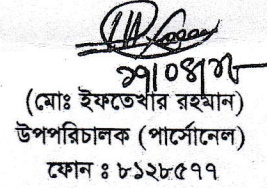 (মোঃ ইফতেখার রহমান)
উপপরিচালক (পার্সোনেল)
ফোন ঃ ৮১২৮৫৭৭